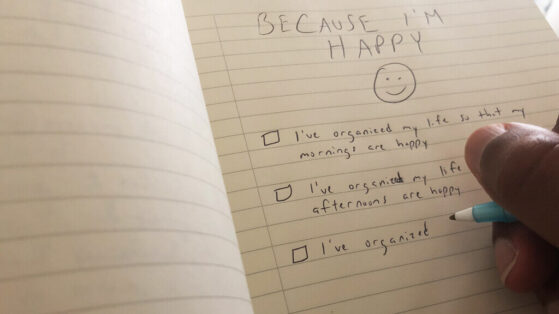 BECAUSE I'M
HAPPY
I've organized my life so that my
mornings are happy
I've organized my life
afternoons are happy
I've organized